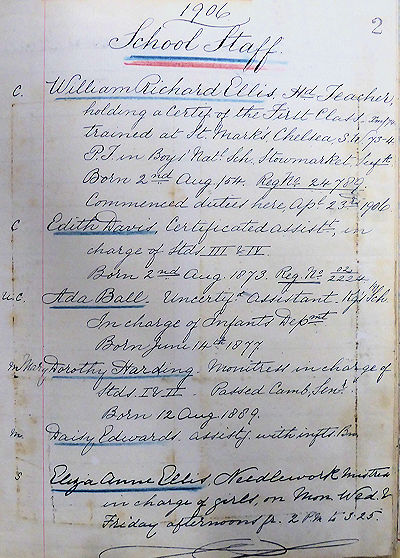 1906
2
School Staff.
C. William Richard Ellis, Hd Teacher,
holding a Certif. of the First Class,
trained at St. Mark's Chelsea, S.W. 73-4.
P.T. in Boys' Natl. Sch. Stowmarket Suffk.
Born 2nd Aug. /54. Reg. No. 24789.
Commenced duties here, Apl. 23rd 1906
C Edith Davis, Certificated assistt., in
charge of Stds. III & IV.
Born 2nd Aug. 1873. Reg. No. 02/2224
U.C. Ada Ball. Uncertifd. assistant
In charge of Infants Depmt.
Born June 14th 1877
M Mary Dorothy Harding. Monitress in charge of
Stds. I & II. Passed Camb. Senr.
Born 12 Aug 1889.
M. Daisy Edwards. assistg. with infts.
S Eliza Anne Ellis, Needlework Mistress
in charge of girls, on Mon. Wed. &
Friday afternoons fr. 2 PM to 3.25.